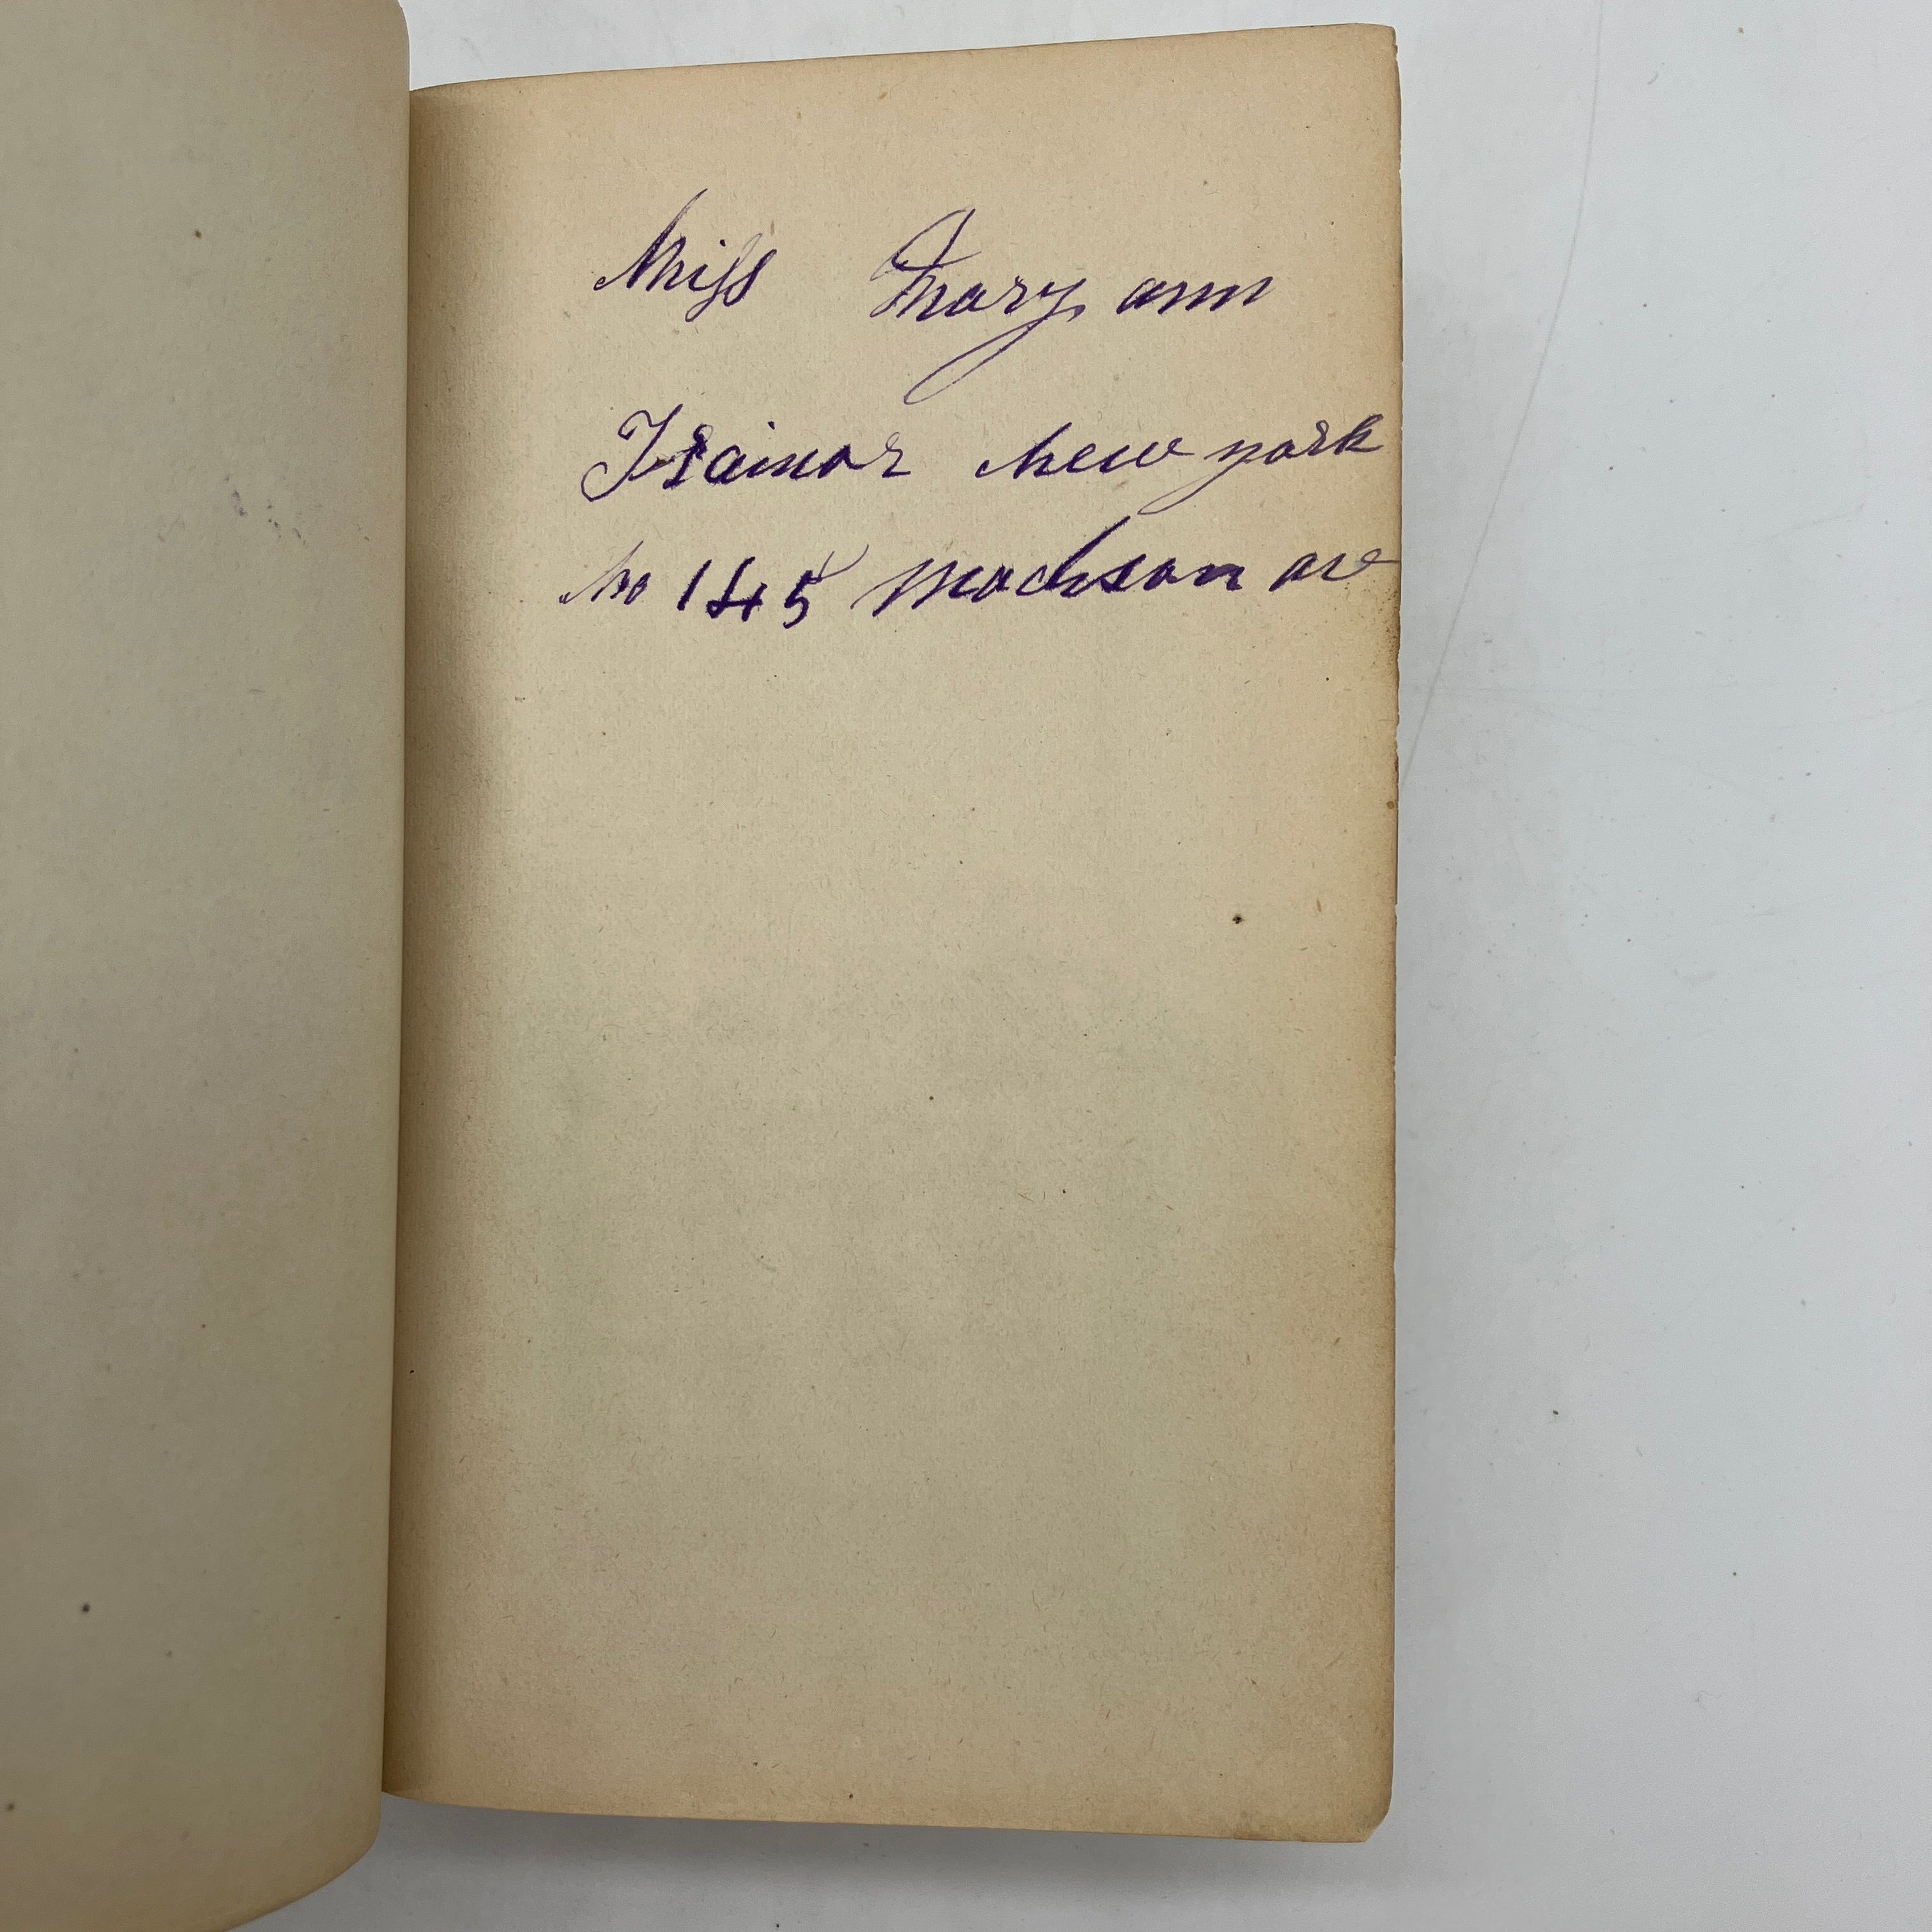 Miss Mary ann
Trainor New york
No 145 Madison ave